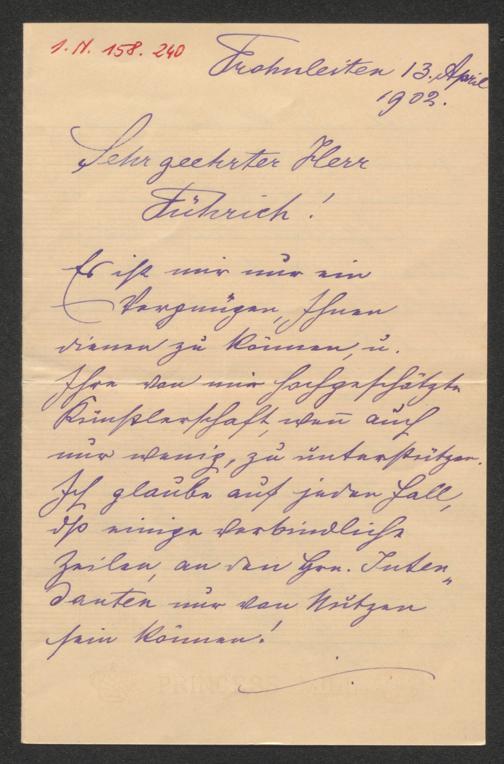 I. N. 158.240
Frohnleiten 13. April
1902.
Sehr geehrter Herr
Führich!
Es ist mir nur ein
Vergnügen, Ihnen
dienen zu können, u.
Ihre von mir hochgeschätzte
Künstlerschaft, weñ auch
nur wenig, zu unterstützen.
Ich glaube auf jeden Fall,
dß einige verbindliche
Zeilen, an den Hrn. Inten„
danten nur von Nutzen
sein können!
PRINCESS